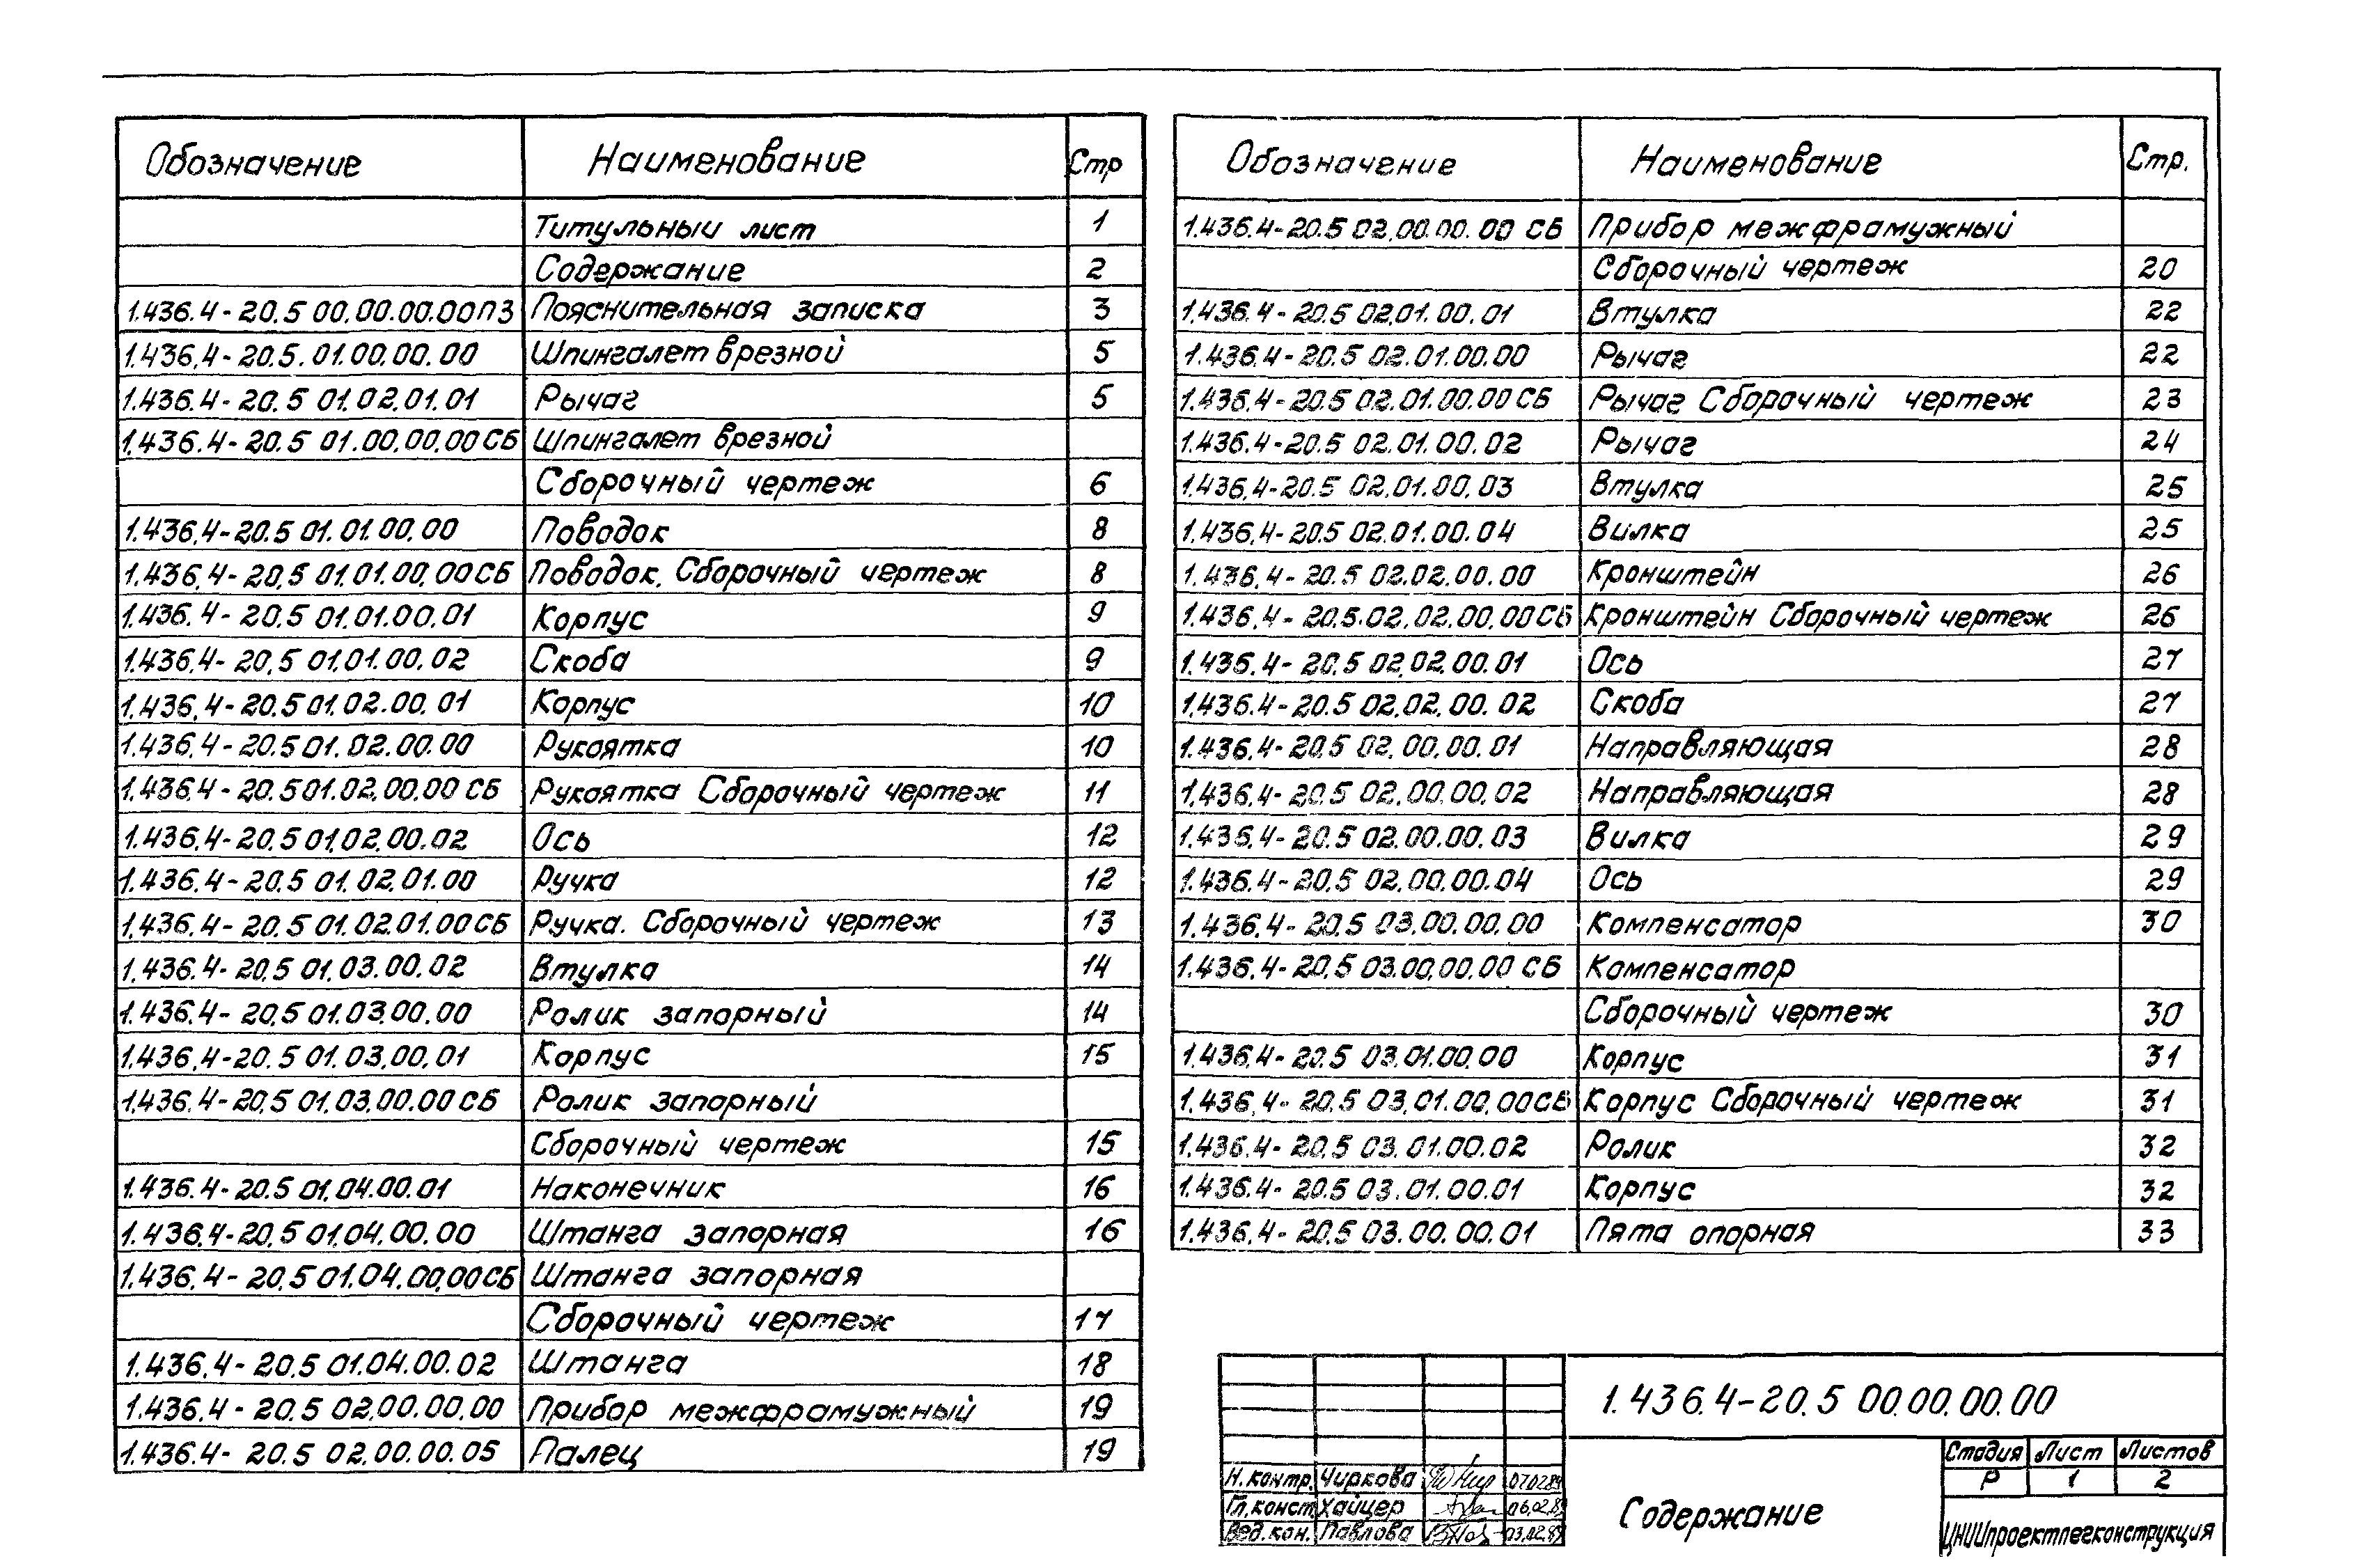 Обозначение Наименование Стр
Титульный лист 1
Содержание 2
1.436.4-20.5 00.00.00.00ПЗ Пояснительная записка 3
1.436.4-20.5.01.00.00.00 Шпингалет врезной 5
1.436.4-20.5 01.02.01.01 Рычаг 5
1.436.4-20.5 01.00.00.00СБ Шпингалет врезной
Сборочный чертеж 6
1.436.4-20.5 01.01.00.00 Поводок 8
1.436.4-20.5 01.01.00.00СБ Поводок. Сборочный чертеж 8
1.436.4-20.5 01.01.00.01 Корпус 9
1.436.4-20.5 01.01.00.02 Скоба 9
1.436.4-20.5 01.02.00.01 Корпус 10
1.436.4-20.5 01.02.00.00 Рукоятка 10
1.436.4-20.5 01.02.00.00 СБ Рукоятка Сборочный чертеж 11
1.436.4-20.5 01.02.00.02 Ось 12
1.436.4-20.5 01.02.01.00 Ручка 12
1.436.4-20.5 01.02.01.00СБ Ручка. Сборочный чертеж 13
1.436.4-20.5 01.03.00.02 Втулка 14
1.436.4-20.5 01.03.00.00 Ролик запорный 14
1.436.4-20.5 01.03.00.01 Корпус 15
1.436.4-20.5 01.03.00.00СБ Ролик запорный
Сборочный чертеж 15
1.436.4-20.5 01.04.00.01 Наконечник 16
1.436.4-20.5 01.04.00.00 Штанга запорная 16
1.436.4-20.5 01.04.00.00СБ Штанга запорная
Сборочный чертеж 17
1.436.4-20.5 01.04.00.02 Штанга 18
1.436.4-20.5 02.00.00.00 Прибор межфрамужный 19
1.436.4-20.5 02.00.00.05 Палец 19
Обозначение Наименование Стр.
1.436.4-20.5 02.00.00.00 СБ Прибор межфрамужный
Сборочный чертеж 20
1.436.4-20.5 02.01.00.01 Втулка 22
1.436.4-20.5 02.01.00.00 Рычаг 22
1.436.4-20.5 02.01.00.00 СБ Рычаг Сборочный чертеж 23
1.436.4-20.5 02.01.00.02 Рычаг 24
1.436.4-20.5 02.01.00.03 Втулка 25
1.436.4-20.5 02.01.00.04 Вилка 25
1.436.4-20.5 02.02.00.00 Кронштейн 26
1.436.4-20.5.02.02.00.00СБ Кронштейн Сборочный чертеж 26
1.436.4-20.5 02.02.00.01 Ось 27
1.436.4-20.5 02.02.00.02 Скоба 27
1.436.4-20.5 02.00.00.01 Направляющая 28
1.436.4-20.5 02.00.00.02 Направляющая 28
1.436.4-20.5 02.00.00.03 Вилка 29
1.436.4-20.5 02.00.00.04 Ось 29
1.436.4-20.5 03.00.00.00 Компенсатор 30
1.436.4-20.5 03.00.00.00 СБ Компенсатор
Сборочный чертеж 30
1.436.4-20.5 03.01.00.00 Корпус 31
1.436.4-20.5 03.01.00.00СБ Корпус Сборочный чертеж 31
1.436.4-20.5 03.01.00.02 Ролик 32
1.436.4-20.5 03.01.00.01 Корпус 32
1.436.4-20.5 03.00.00.01 Пята опорная 33
1.436.4-20.5 00.00.00.00
Стадия Лист Листов
Р 1 2
Н.контр. Чиркова 07.02.89
Гл.конст. Хайцер 06.02.89
Вед.кон. Павлова 03.02.89
Содержание
ЦНИИпроектлегконструкция